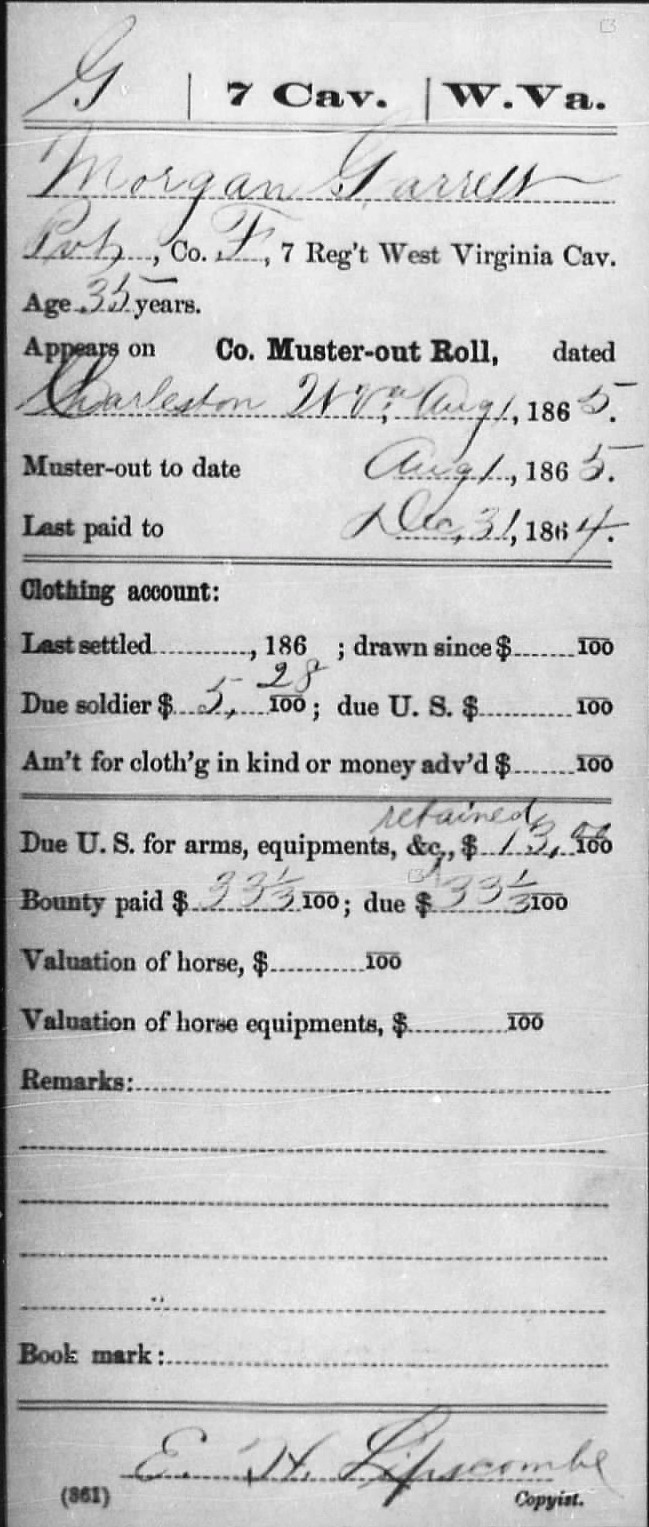 G | 7 Cav. | W.Va.
Morgan Garrett
Pvt, Co. F, 7 Reg't West Virginia Cav.
Age 35 years.
Appears on Co. Muster-out Roll, dated
Charleston W Va, Aug 1, 1865.
Muster-out to date Aug 1, 1865.
Last paid to Dec, 31, 1864.
Clothing account:
Last settled ............, 186 ; drawn since $ ....... 100
Due soldier $ 5, 28/100 ; due U. S. $ .......... 100
Am't for cloth'g in kind or money adv'd $ ....... 100
retained
Due U. S. for arms, equipments, &c., $ 13, 00/100
Bounty paid $ 33 1/3 100 ; due $ 33 1/3 100
Valuation of horse, $ ........... 100
Valuation of horse equipments, $ ............ 100
Remarks:
Book mark :
E. H. Lipscombe
(861) Copyist.